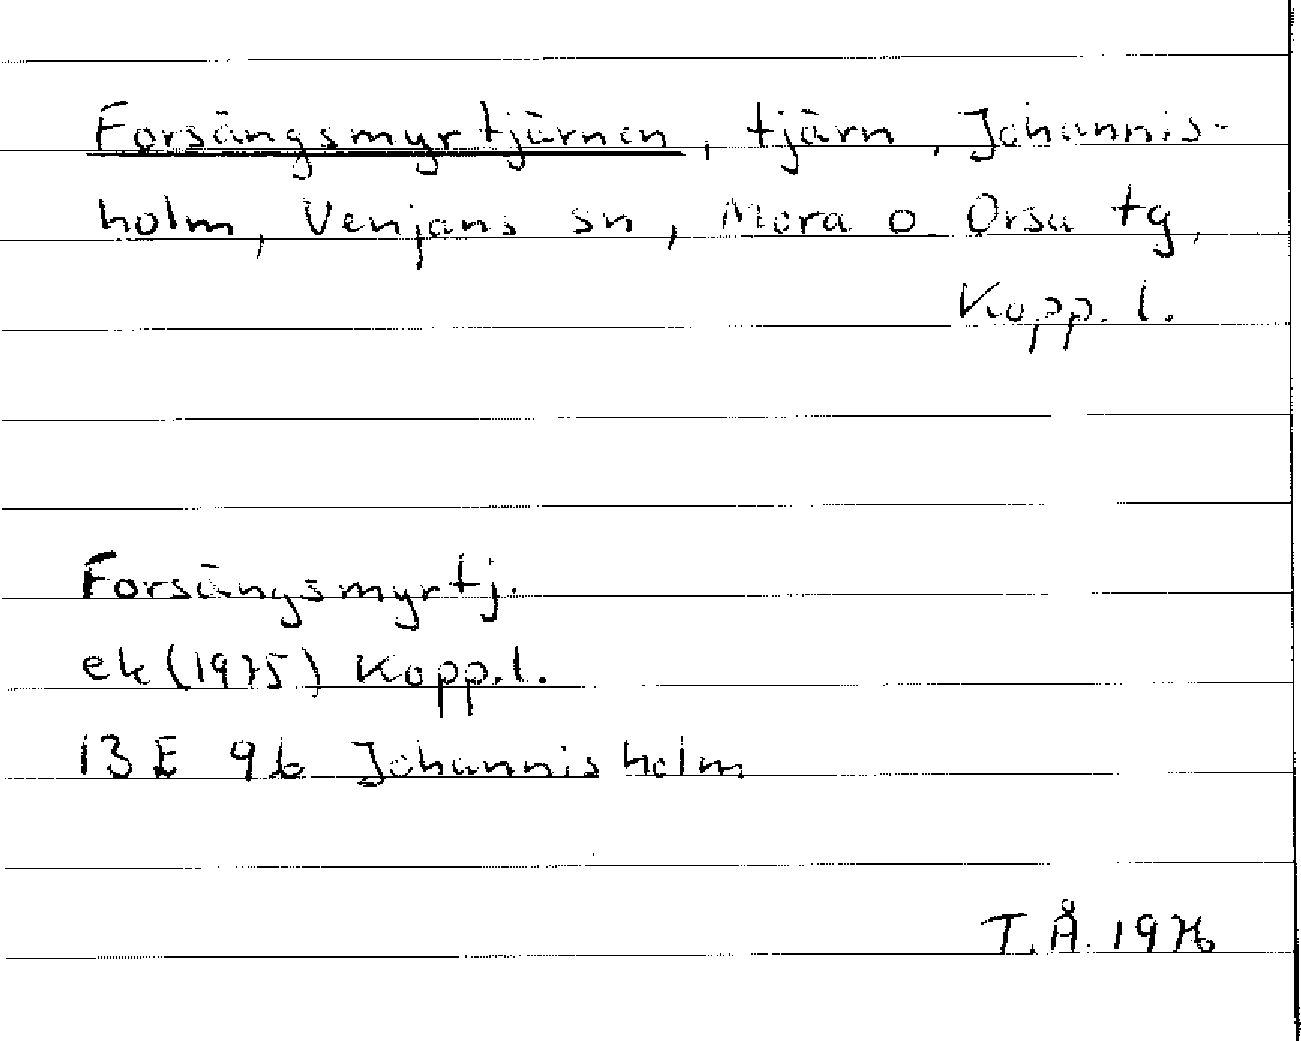 Forsängsmyrtjärnen, tjärn, Johannis-
holm, Venjans sn, Mora o Orsa tg,
Kopp. l.
Forsängsmyrtj.
ek (1975) Kopp. l.
13 E 9b Johannisholm
T.Å. 1976